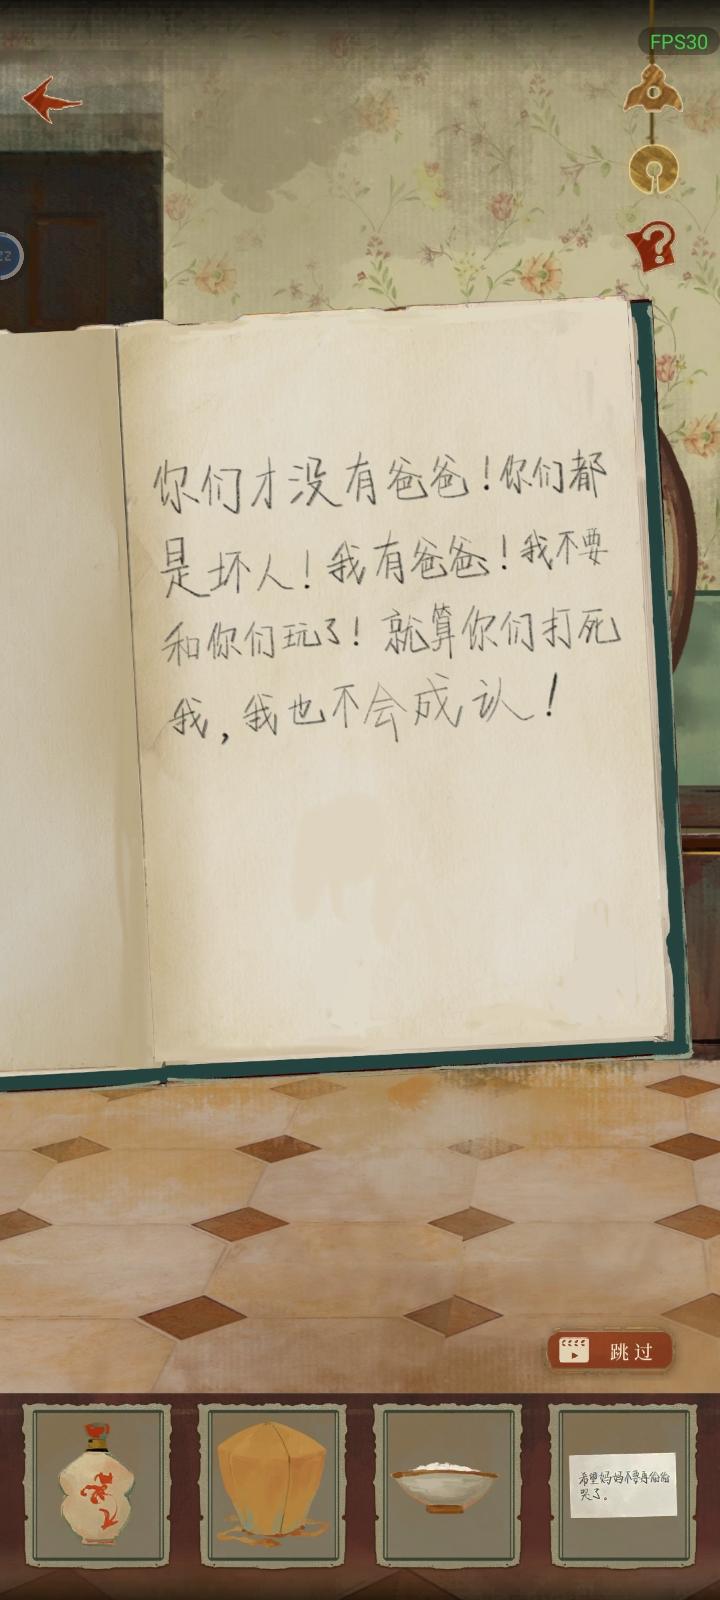 FPS30
你们才没有爸爸!你们都
是坏人!我有爸爸!我不要
和你们玩了!就算你们打死
我,我也不会成认!
跳过
希望妈妈不要再偷偷
哭了。